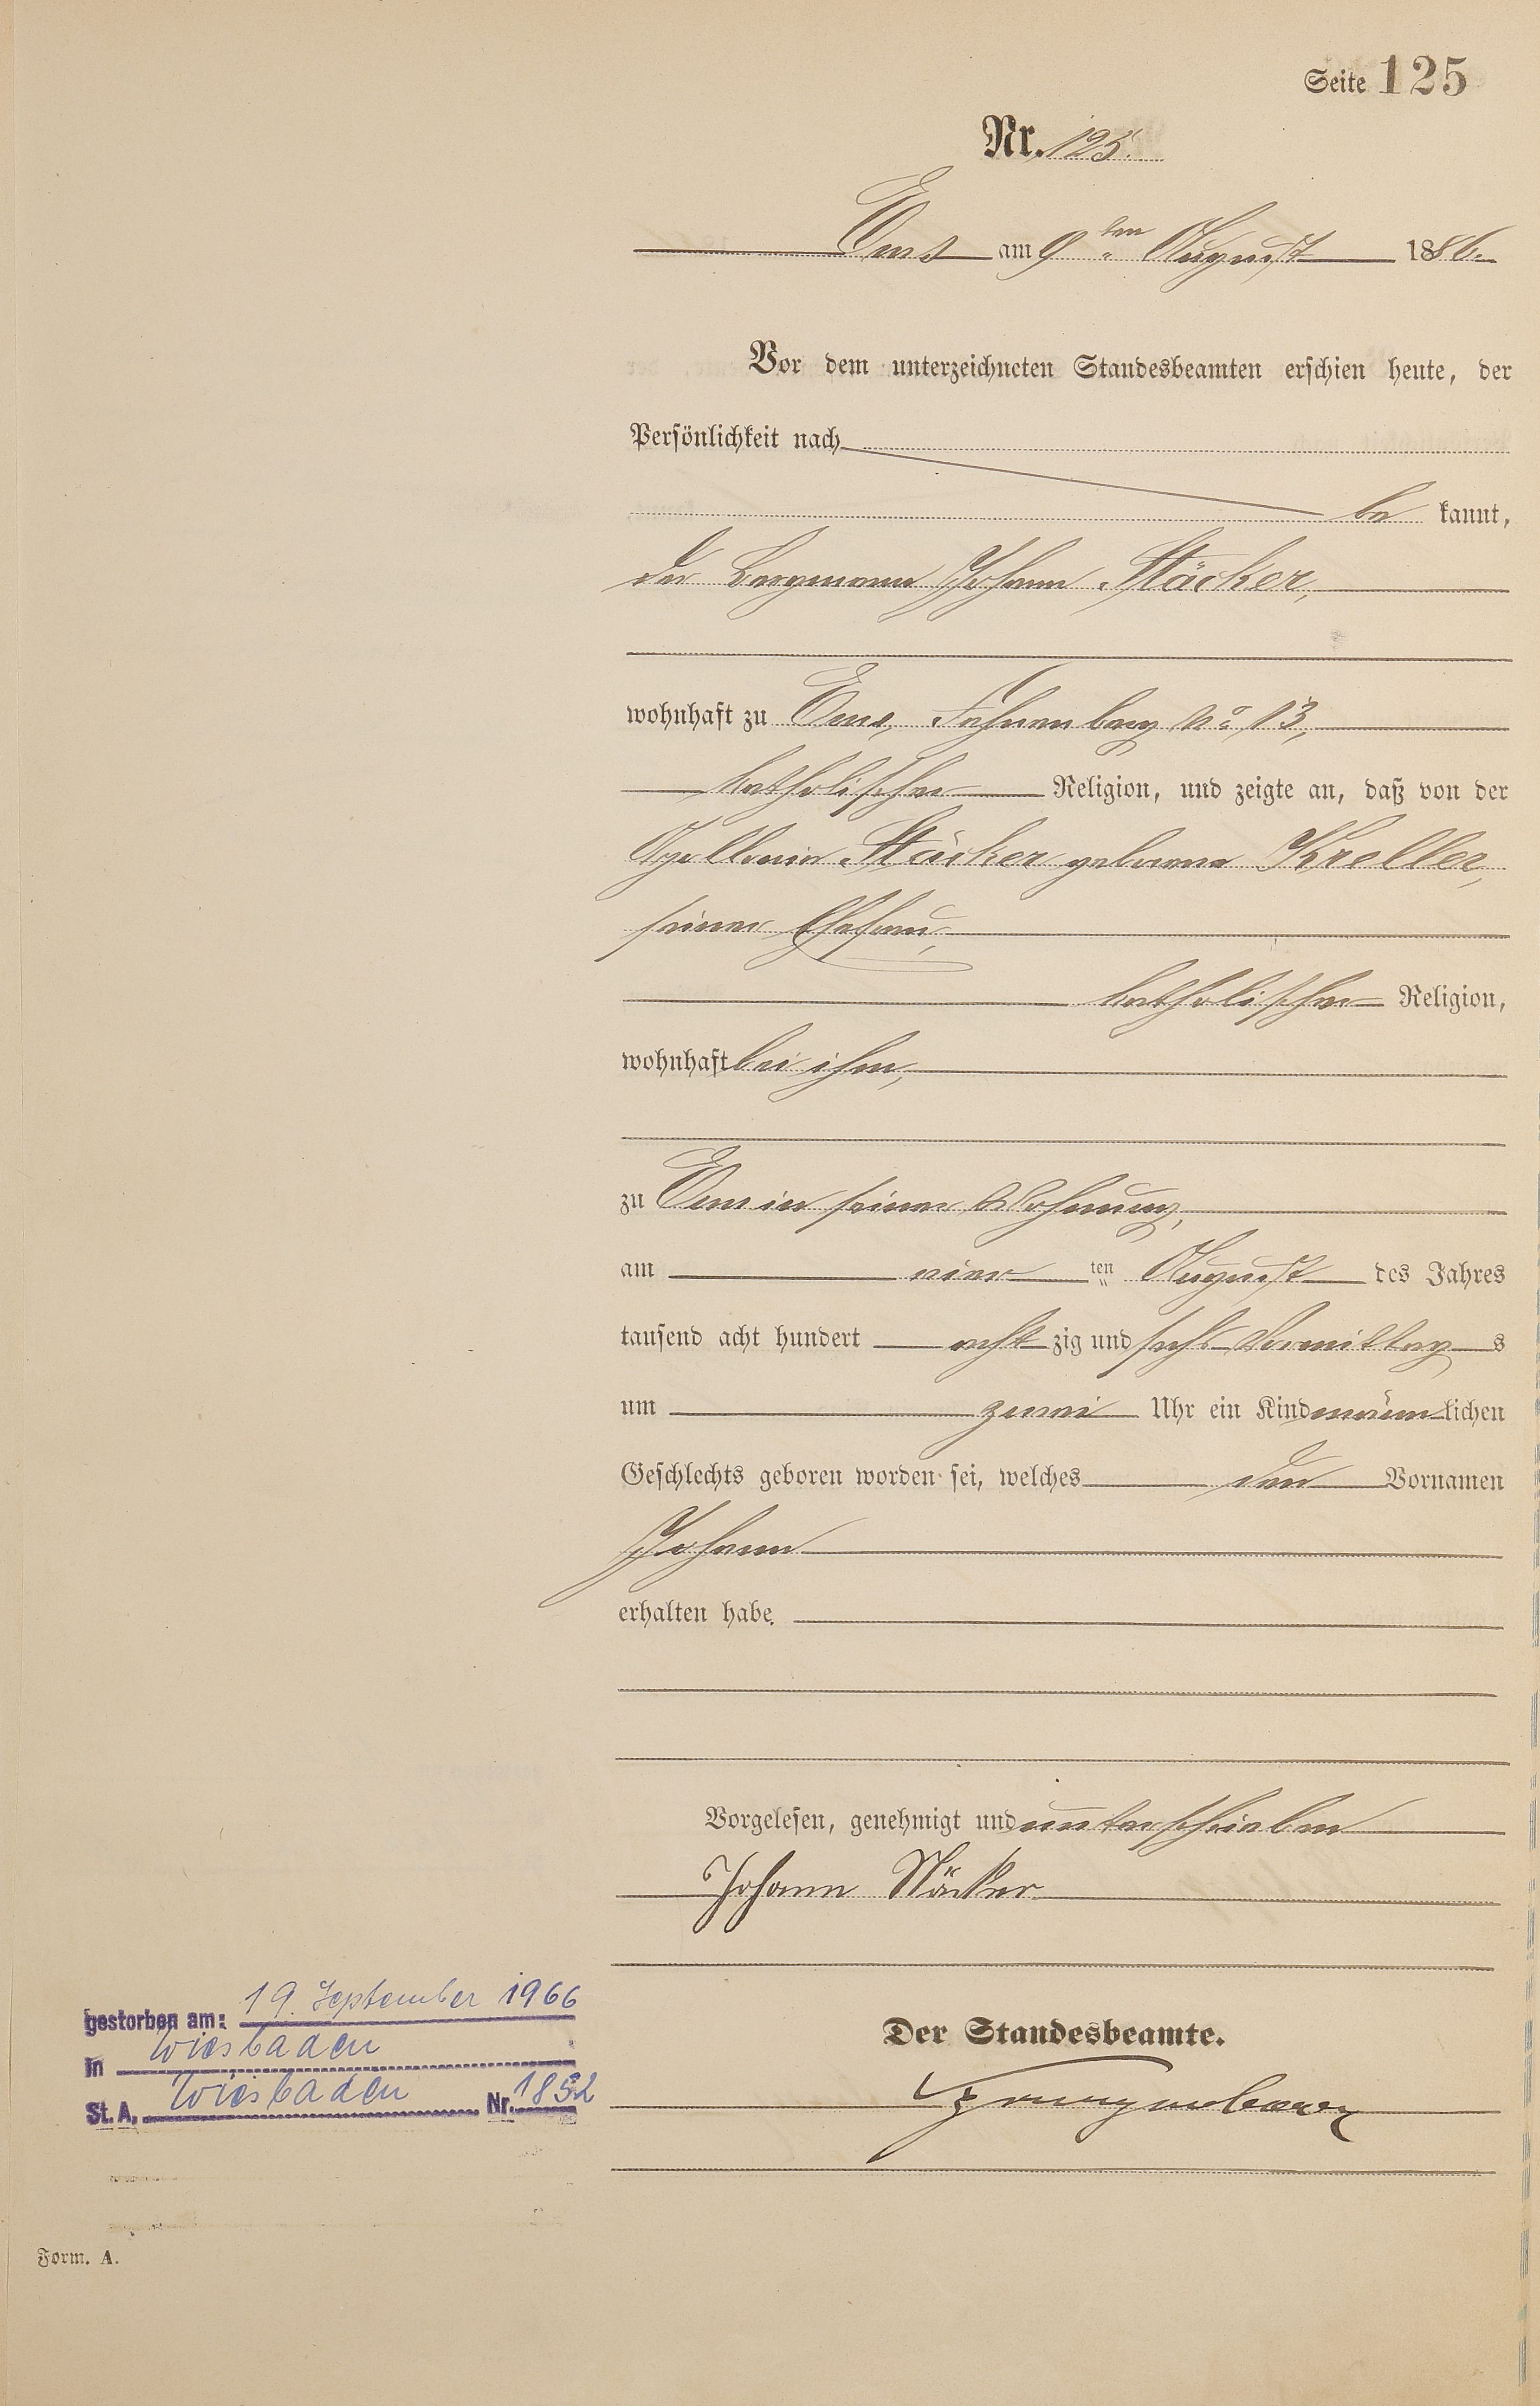 Seite 125
Nr. 125.
Ems am 9ten August 1886.
Vor dem unterzeichneten Standesbeamten erschien heute, der
Persönlichkeit nach
be kannt,
der Bergmann Johann Stäcker,
wohnhaft zu Ems, Fahnenberg No 13,
katholischer Religion, und zeigte an, daß von der
Apollonia Stäcker geborene Kreller,
seiner Ehefrau,
katholischer Religion,
wohnhaft bei ihm,
zu Ems in seiner Wohnung,
am vier ten August des Jahres
tausend acht hundert acht zig und sechs Vormittag s
um zwei Uhr ein Kind männ lichen
Geschlechts geboren worden sei, welches den Vornamen
Johann
erhalten habe.
Vorgelesen, genehmigt und unterschrieben
Johann Stäcker
Der Standesbeamte.
gestorben am: 19. September 1966
in Wiesbaden
St. A. Wiesbaden Nr. 1852
Form. A.